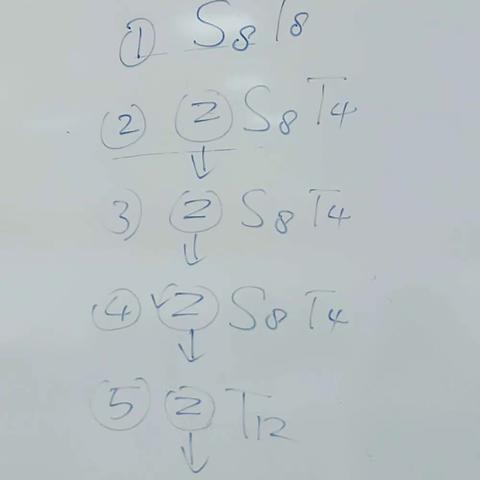 ① S8 T8
② ② S8 T4
↓
3) ② S8 T4
↓
④ ② S8 T4
↓
⑤ ② T12
↓